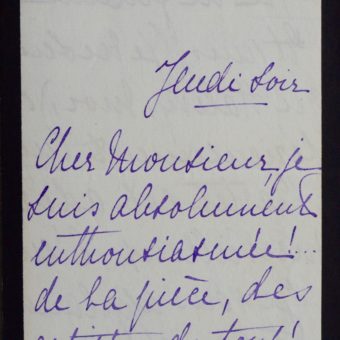 Jeudi soir
Cher Monsieur, je
suis absolument
enthousiasmée!...
de la pièce, des